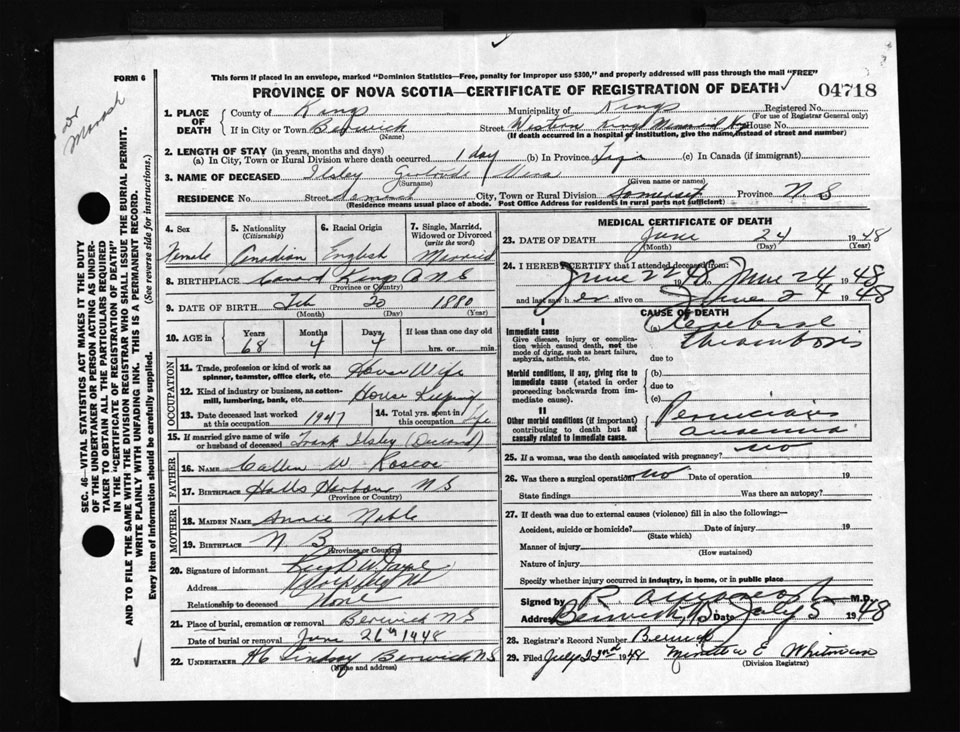 This form if placed in an envelope, marked "Dominion Statistics—Free, penalty for improper use $300," and properly addressed will pass through the mail "FREE"
FORM 6
PROVINCE OF NOVA SCOTIA—CERTIFICATE OF REGISTRATION OF DEATH
04718
Dr
1. PLACE OF DEATH
County of Kings
Municipality of Kings
Registered No.
(For use of Registrar General only)
If in City or Town Berwick
(Name)
Street Western Kings Memorial House No.
(If death occurred in a hospital or institution, give the name, instead of street and number)
2. LENGTH OF STAY (in years, months and days)
(a) In City, Town or Rural Division where death occurred 1 day (b) In Province Life (c) In Canada (if immigrant)
3. NAME OF DECEASED Ilsley Gertrude Vera
(Surname) (Given name or names)
RESIDENCE No. Street Somerset City, Town or Rural Division Somerset Province N.S
(Residence means usual place of abode. Post Office Address for residents in rural parts not sufficient)
4. Sex Female
5. Nationality (Citizenship) Canadian
6. Racial Origin English
7. Single, Married, Widowed or Divorced (write the word) Married
8. BIRTHPLACE Canard Kings Co N S
(Province or Country)
9. DATE OF BIRTH Feb 20 1880
(Month) (Day) (Year)
10. AGE in Years 68 Months 4 Days 4 If less than one day old hrs. or min.
OCCUPATION
11. Trade, profession or kind of work as spinner, teamster, office clerk, etc. House Wife
12. Kind of industry or business, as cotton-mill, lumbering, bank, etc. House Keeping
13. Date deceased last worked at this occupation 1947
14. Total yrs. spent in this occupation Life
15. If married give name of wife or husband of deceased Frank Ilsley (Second)
FATHER
16. NAME Callen W. Roscoe
17. BIRTHPLACE Halls Harbour N S
(Province or Country)
MOTHER
18. MAIDEN NAME Annie Noble
19. BIRTHPLACE N B
(Province or Country)
20. Signature of informant
Address
Relationship to deceased None
21. Place of burial, cremation or removal Berwick N S
Date of burial or removal June 26th 1948
22. UNDERTAKER H C Lindsay Berwick N S
(Name and address)
MEDICAL CERTIFICATE OF DEATH
23. DATE OF DEATH June 24 1948
(Month) (Day) (Year)
24. I HEREBY CERTIFY that I attended deceased from:
June 22 48 to June 24 1948
and last saw her alive on June 24 1948
CAUSE OF DEATH
I
Immediate cause
Give disease, injury or complication which caused death, not the mode of dying, such as heart failure, asphyxia, asthenia, etc.
(a) Cerebral Thrombosis
due to
Morbid conditions, if any, giving rise to immediate cause (stated in order proceeding backwards from immediate cause).
(b)
due to
(c)
II
Other morbid conditions (if important) contributing to death but not causally related to immediate cause.
Pernicious anaemia
25. If a woman, was the death associated with pregnancy? no
26. Was there a surgical operation? no Date of operation 19
State findings Was there an autopsy?
27. If death was due to external causes (violence) fill in also the following:—
Accident, suicide or homicide? Date of injury 19
(State which)
Manner of injury
(How sustained)
Nature of injury
Specify whether injury occurred in industry, in home, or in public place
Signed by M.D.
Address Berwick NS Date July 5 1948
28. Registrar's Record Number Berwick
29. Filed July 22nd 1948 E Whitman
(Division Registrar)
SEC. 46—VITAL STATISTICS ACT MAKES IT THE DUTY
OF THE UNDERTAKER OR PERSON ACTING AS UNDER-
TAKER TO OBTAIN ALL THE PARTICULARS REQUIRED
IN THE "CERTIFICATE OF REGISTRATION OF DEATH"
AND TO FILE THE SAME WITH THE DIVISION REGISTRAR WHO SHALL ISSUE THE BURIAL PERMIT.
WRITE PLAINLY WITH UNFADING INK. THIS IS A PERMANENT RECORD.
Every item of information should be carefully supplied. (See reverse side for instructions.)